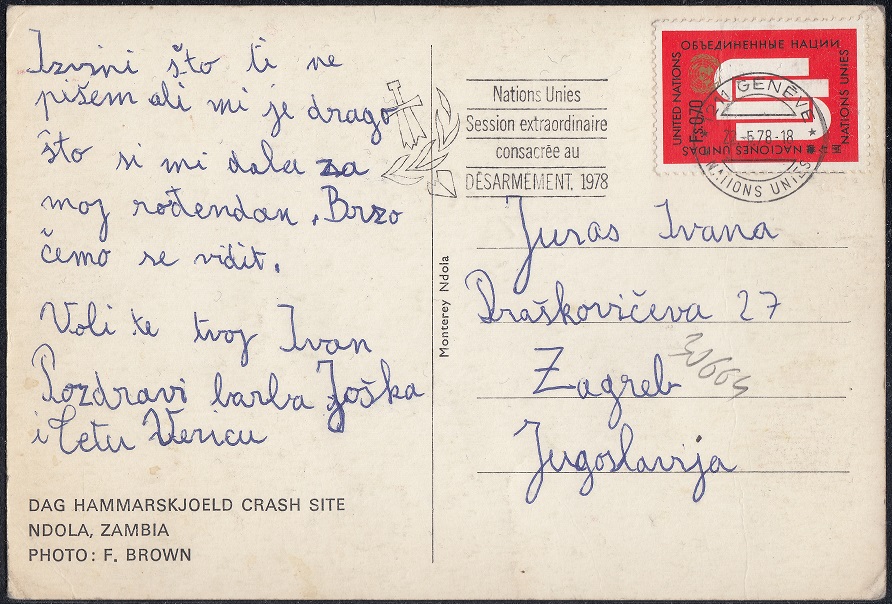 Izvini što ti ne
pišem ali mi je drago
što si mi dala za
moj rođendan. Brzo
ćemo se vidit.
Voli te tvoj Ivan
Pozdravi barba Joška
i tetu Vericu
DAG HAMMARSKJOELD CRASH SITE
NDOLA, ZAMBIA
PHOTO: F. BROWN
Monterey Ndola
Nations Unies
Session extraordinaire
consacrée au
DÉSARMEMENT, 1978
ОБЪЕДИНЕННЫЕ НАЦИИ
UNITED NATIONS
NATIONS UNIES
F.s.0,70
NACIONES UNIDAS
1211 GENÈVE
-5.78-18
NATIONS UNIES
Juras Ivana
Draškovićeva 27
Zagreb
Jugoslavija